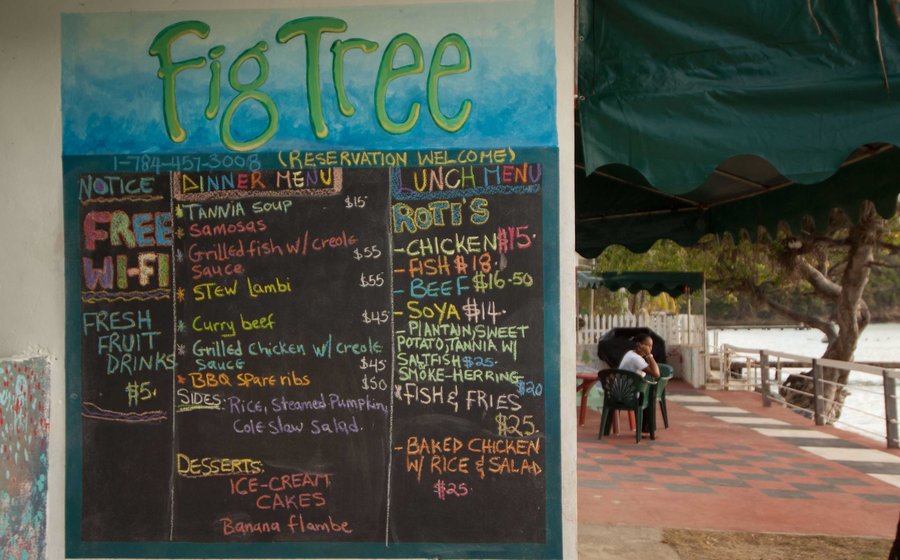 Fig Tree
1-784-457-3008 (RESERVATION WELCOME)
NOTICE
FREE
WI-FI
FRESH
FRUIT
DRINKS
$5.
DINNER MENU
* TANNIA SOUP $15
* SAMOSAS
* Grilled fish w/ creole $55
Sauce
* STEW Lambi $55
* Curry beef $45
* Grilled Chicken w/ creole
Sauce $45
* BBQ SPARE RIBS $50
SIDES: Rice, Steamed Pumpkin,
Cole Slaw Salad.
DESSERTS:
ICE-CREAM
CAKES
Banana flambe
LUNCH MENU
ROTI'S
- CHICKEN $15.
- FISH $18.
- BEEF $16-50
- SOYA $14.
- PLANTAIN, SWEET
POTATO, TANNIA W/
SALTFISH $25.
SMOKE-HERRING $20
* FISH & FRIES
$25.
- BAKED CHICKEN
W/ RICE & SALAD
$25.